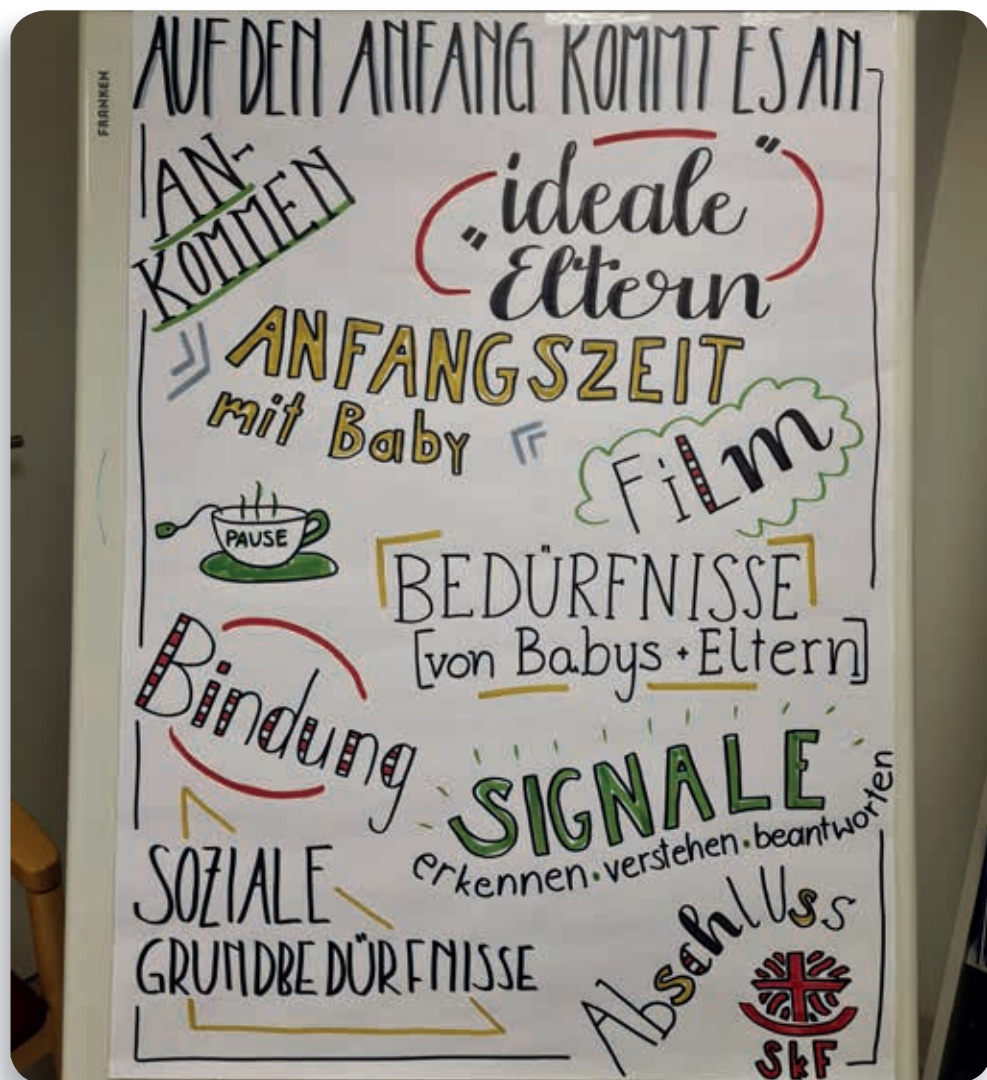 FRANKEN
AUF DEN ANFANG KOMMT ES AN
AN-
KOMMEN
"ideale
Eltern"
ANFANGSZEIT
mit Baby
FiLm
PAUSE
BEDÜRFNISSE
[von Babys + Eltern]
Bindung
SIGNALE
erkennen · verstehen · beantworten
SOZIALE
GRUNDBEDÜRFNISSE
AbschlUss
SkF